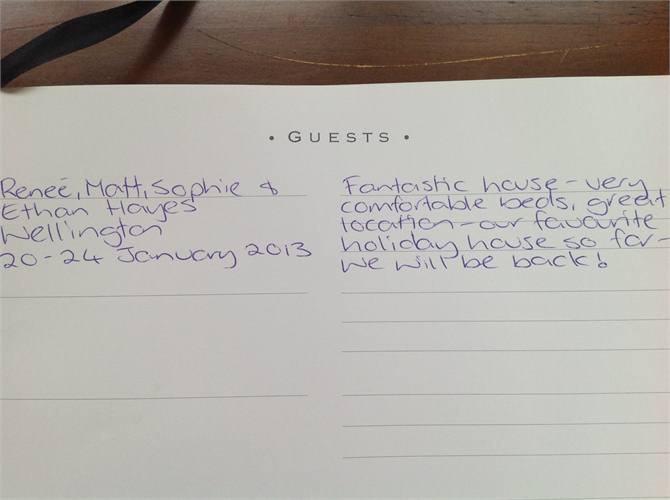 • GUESTS •
Reneé, Matt, Sophie &
Ethan Hayes
Wellington
20-24 January 2013
Fantastic house - very
comfortable beds, great
location - our favourite
holiday house so far -
we will be back!